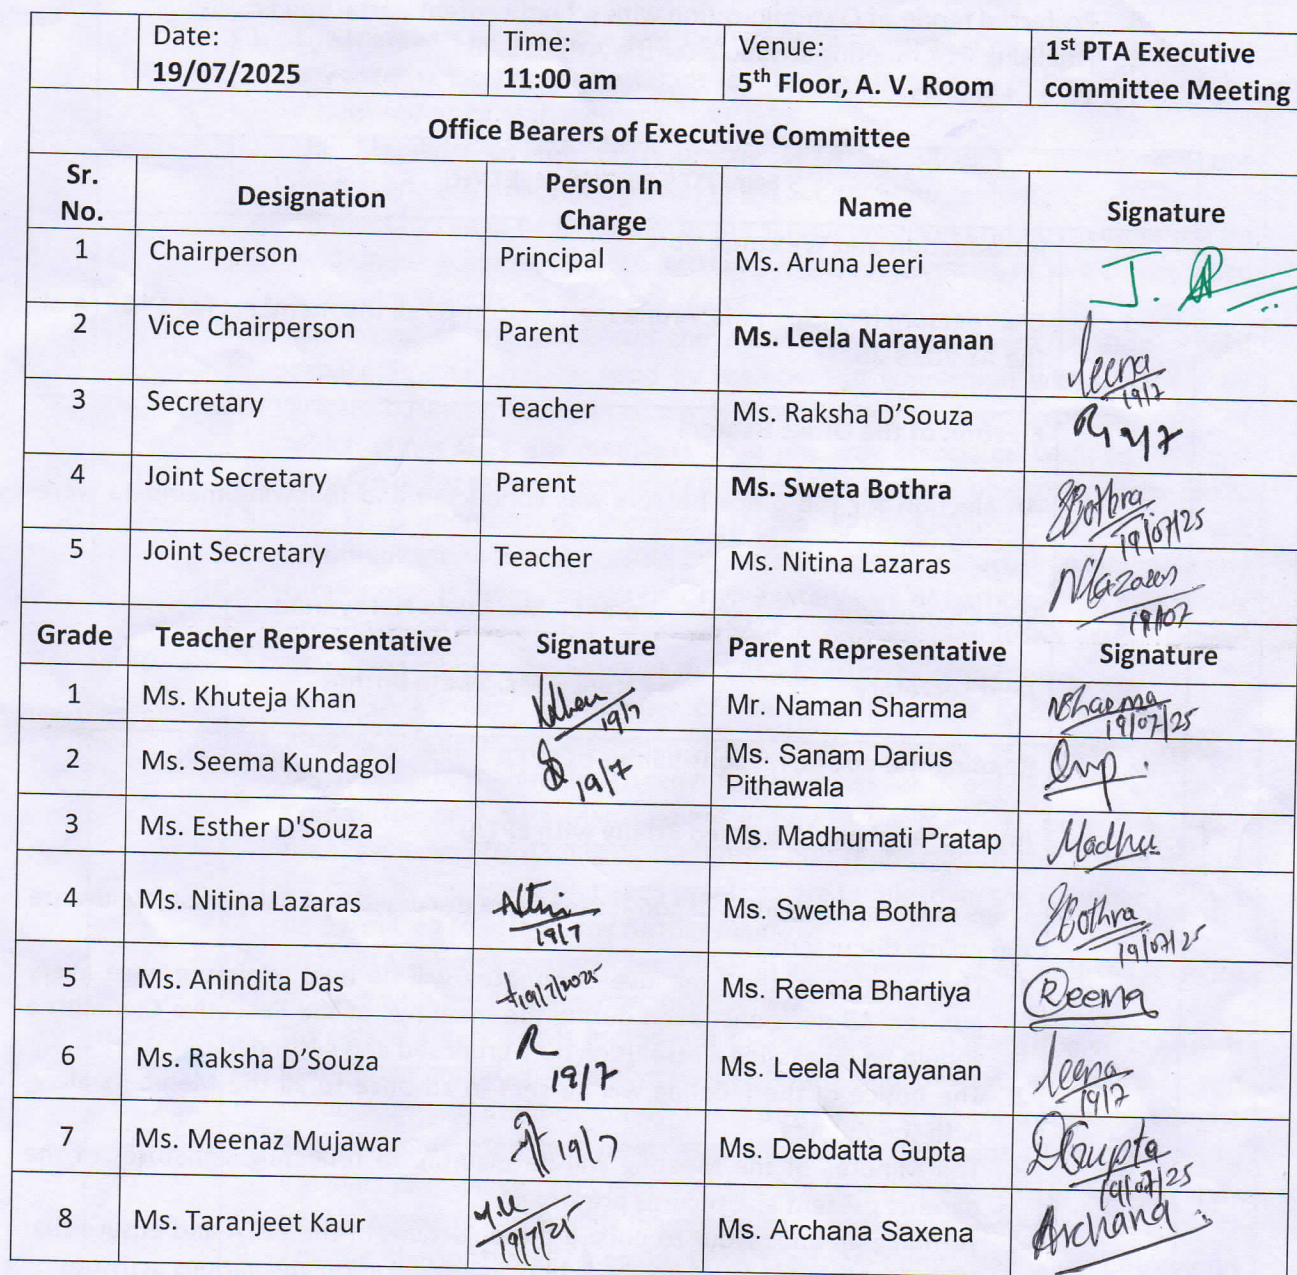 Date:
19/07/2025
Time:
11:00 am
Venue:
5th Floor, A. V. Room
1st PTA Executive
committee Meeting
Office Bearers of Executive Committee
Sr.
No.
Designation
Person In
Charge
Name
Signature
1 Chairperson Principal Ms. Aruna Jeeri J.
2 Vice Chairperson Parent Ms. Leela Narayanan Leena
19/7
3 Secretary Teacher Ms. Raksha D'Souza
19/7
4 Joint Secretary Parent Ms. Sweta Bothra SBothra
19/07/25
5 Joint Secretary Teacher Ms. Nitina Lazaras NLazaras
19/07
Grade Teacher Representative Signature Parent Representative Signature
1 Ms. Khuteja Khan Khan Mr. Naman Sharma NSharma
19/7 19/07/25
2 Ms. Seema Kundagol 19/7 Ms. Sanam Darius
Pithawala
3 Ms. Esther D'Souza Ms. Madhumati Pratap Madhu
4 Ms. Nitina Lazaras Ms. Swetha Bothra SBothra
19/7 19/07/25
5 Ms. Anindita Das 19/7/2025 Ms. Reema Bhartiya Reema
6 Ms. Raksha D'Souza R Ms. Leela Narayanan Leena
19/7 19/7
7 Ms. Meenaz Mujawar 19/7 Ms. Debdatta Gupta DGupta
19/07/25
8 Ms. Taranjeet Kaur Ms. Archana Saxena Archana
19/7/25